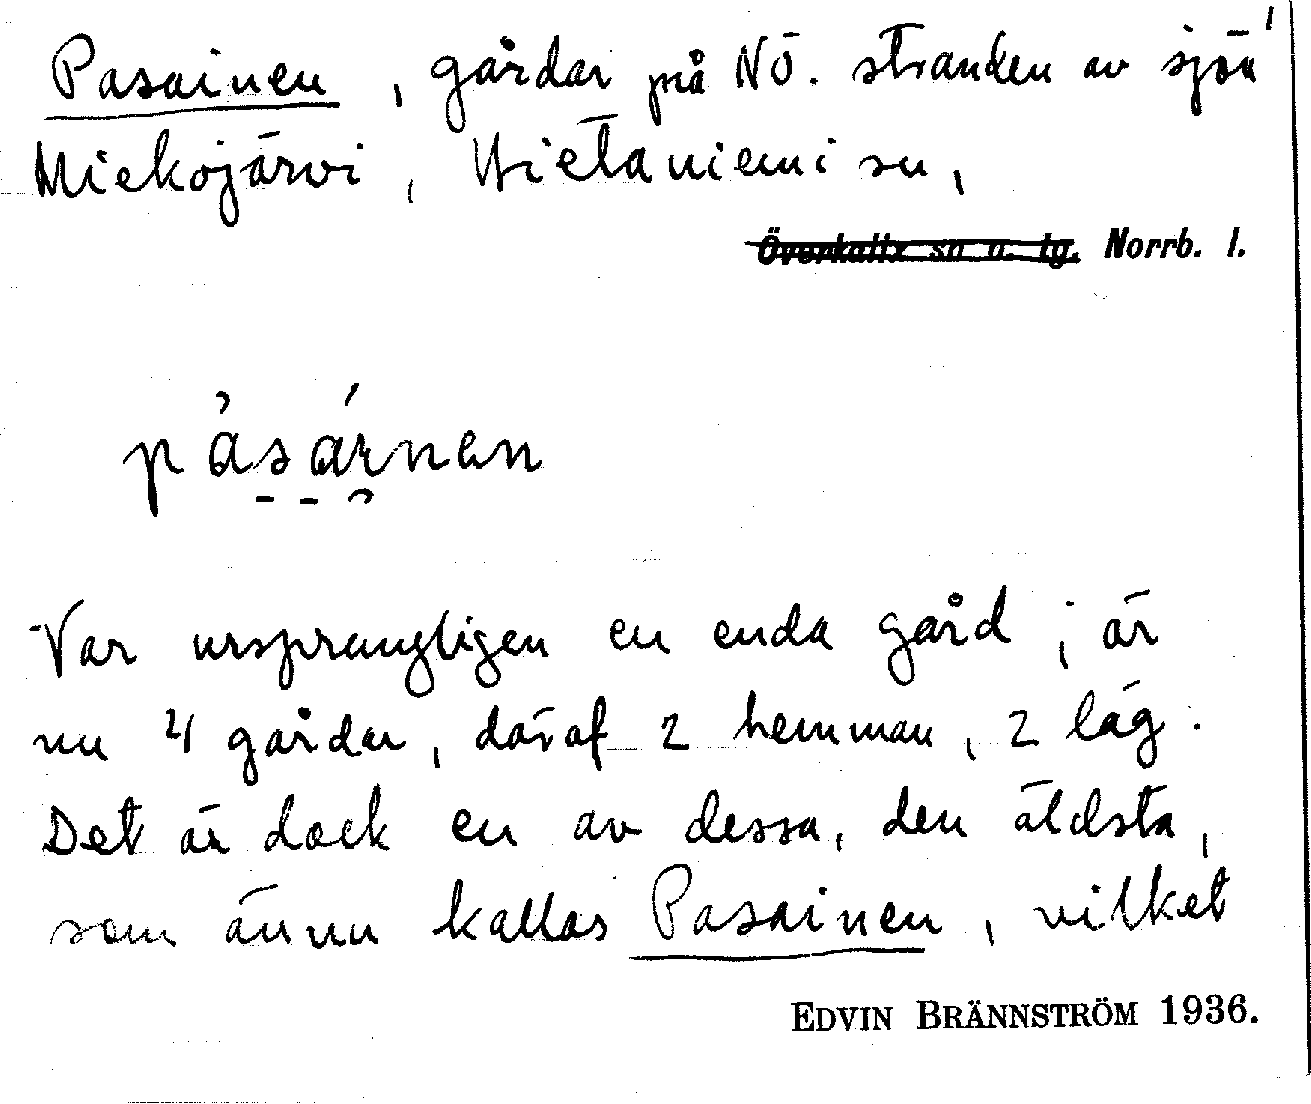 Pasainen, gårdar på NÖ. stranden av sjön 1
Miekojärvi, Hietaniemi sn,
Överkalix sn o. tg. Norrb. l.
pásáınen
Var ursprungligen en enda gård; är
nu 4 gårdar, däraf 2 hemman, 2 läg.
Det är dock en av dessa, den äldsta,
som ännu kallas Pasainen, vilket
EDVIN BRÄNNSTRÖM 1936.